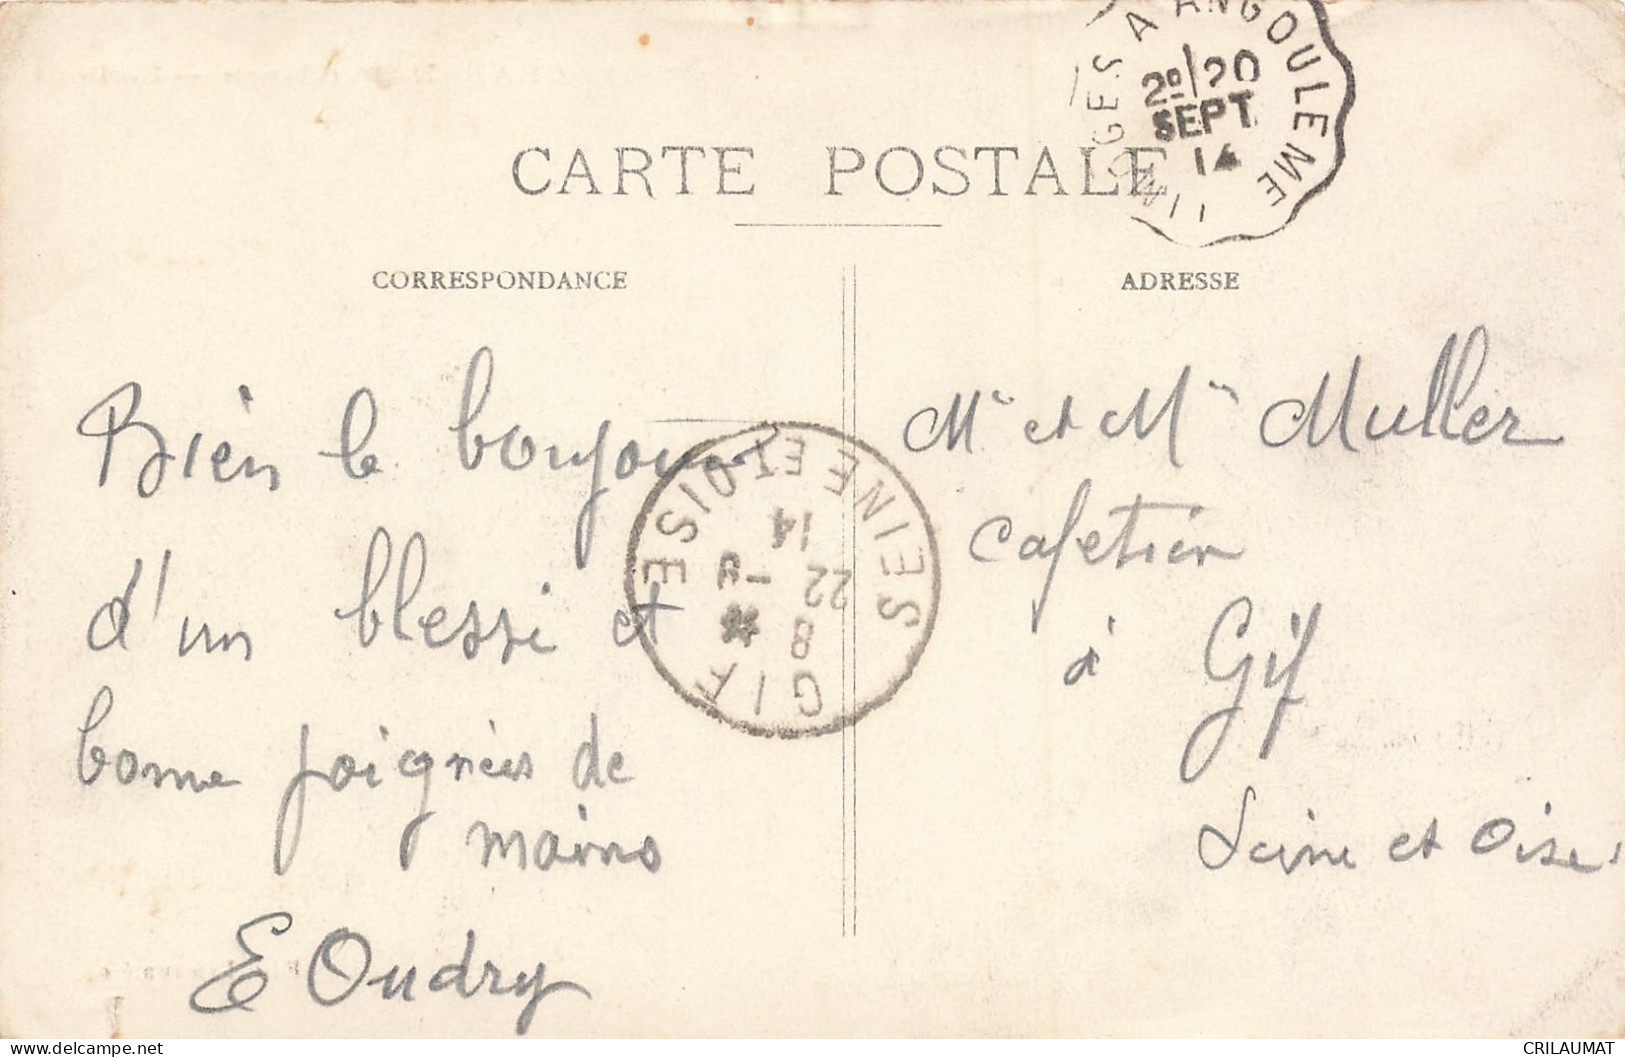 LIMOGES A ANGOULEME
2º/20
SEPT
14
CARTE POSTALE
CORRESPONDANCE
ADRESSE
Bien le bonjour
d'un blessé et
bonne poignées de
mains
E Oudry
Mr et Mme Muller
Cafetier
à Gif
Seine et Oise
GIF
SEINE ET OISE
8
22 - 9
14
CRILAUMAT